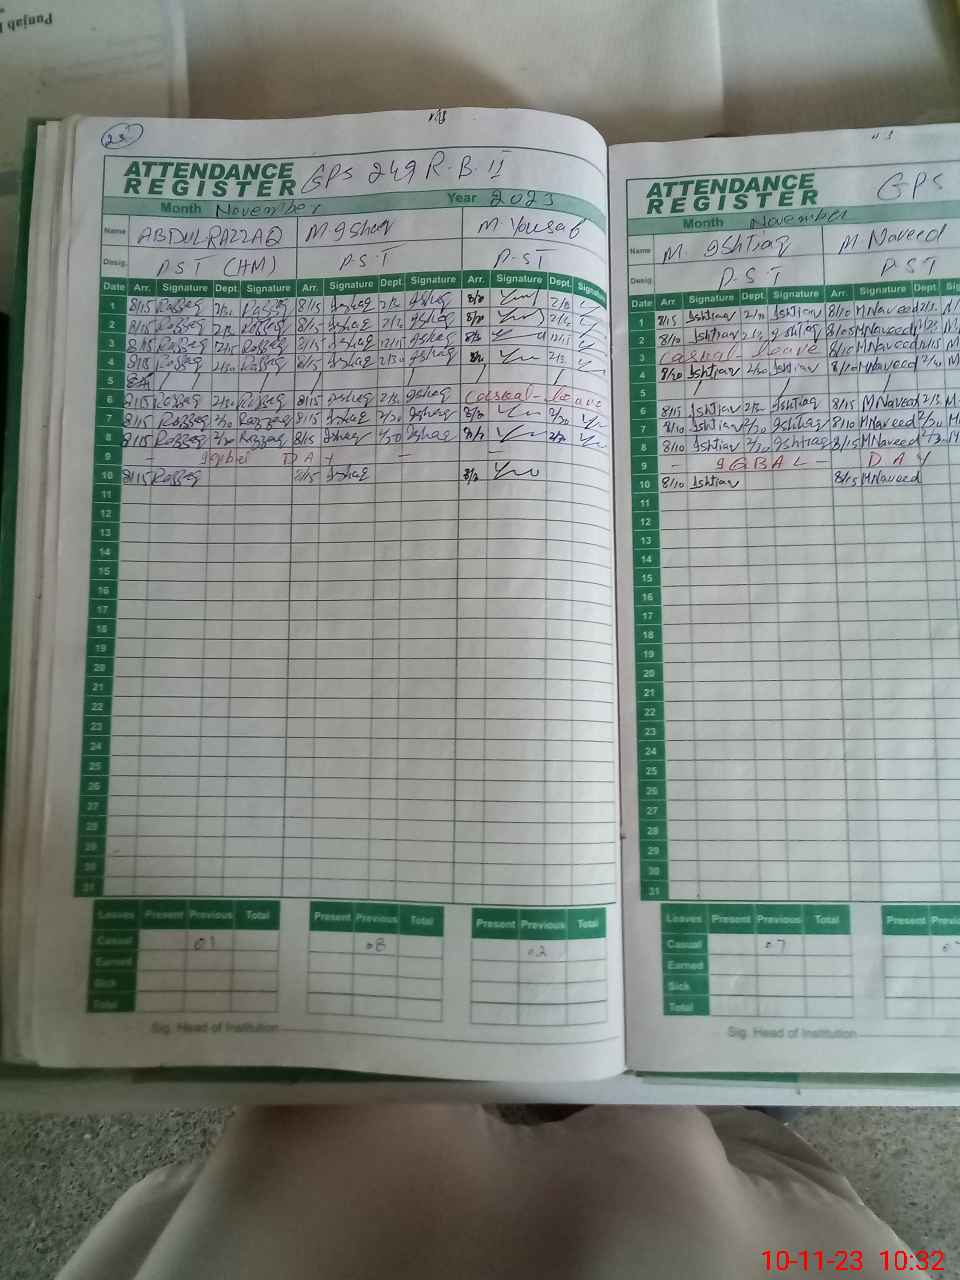 Punjab
23
ATTENDANCE REGISTER GPS 249 R.B. II
Month November Year 2023
Name ABDUL RAZZAQ M. Ishaq M. Yousaf
Desig. P.S.T (HM) P.S.T P.S.T
Date Arr. Signature Dept. Signature Arr. Signature Dept. Signature Arr. Signature Dept. Signature
1 8/15 Razzaq 2/30 Razzaq 8/15 Ishaq 2/30 Ishaq
2 8/15 Razzaq 2/30 Razzaq 8/15 Ishaq 2/30 Ishaq
3 8/15 Razzaq 12/15 Razzaq 8/15 Ishaq 12/15 Ishaq 12/15
4 8/15 Razzaq 2/30 Razzaq 8/15 Ishaq 2/30 Ishaq
5
6 8/15 Razzaq 2/30 Razzaq 8/15 Ishaq 2/30 Ishaq Casual - leave
7 8/15 Razzaq 2/30 Razzaq 8/15 Ishaq 2/30 Ishaq
8 8/15 Razzaq 2/30 Razzaq 8/15 Ishaq 2/30 Ishaq
9 - Iqbal DAY - -
10 8/15 Razzaq 8/15 Ishaq
11
12
13
14
15
16
17
18
19
20
21
22
23
24
25
26
27
28
29
30
31
Leaves Present Previous Total Present Previous Total Present Previous Total
Casual 01 08 02
Earned
Sick
Total
Sig. Head of Institution
ATTENDANCE REGISTER GPS
Month November
Name M. Ishtiaq M. Naveed
Desig. P.S.T P.S.T
Date Arr. Signature Dept. Signature Arr. Signature Dept Sig
1 8/15 Ishtiaq 2/30 Ishtiaq 8/10 MNaveed
2 8/10 Ishtiaq Ishtiaq MNaveed
3 Casual leave 8/10 MNaveed
4 8/10 Ishtiaq 2/30 Ishtiaq 8/10 MNaveed 2/30
5
6 8/15 Ishtiaq 2/30 Ishtiaq 8/15 MNaveed
7 8/10 Ishtiaq 2/30 Ishtiaq 8/10 MNaveed 2/30
8 8/10 Ishtiaq 2/30 Ishtiaq 8/15 MNaveed 2/30
9 - IQBAL DAY
10 8/10 Ishtiaq 8/15 MNaveed
11
12
13
14
15
16
17
18
19
20
21
22
23
24
25
26
27
28
29
30
31
Leaves Present Previous Total Present
Casual 07
Earned
Sick
Total
Sig. Head of Institution
10-11-23 10:32